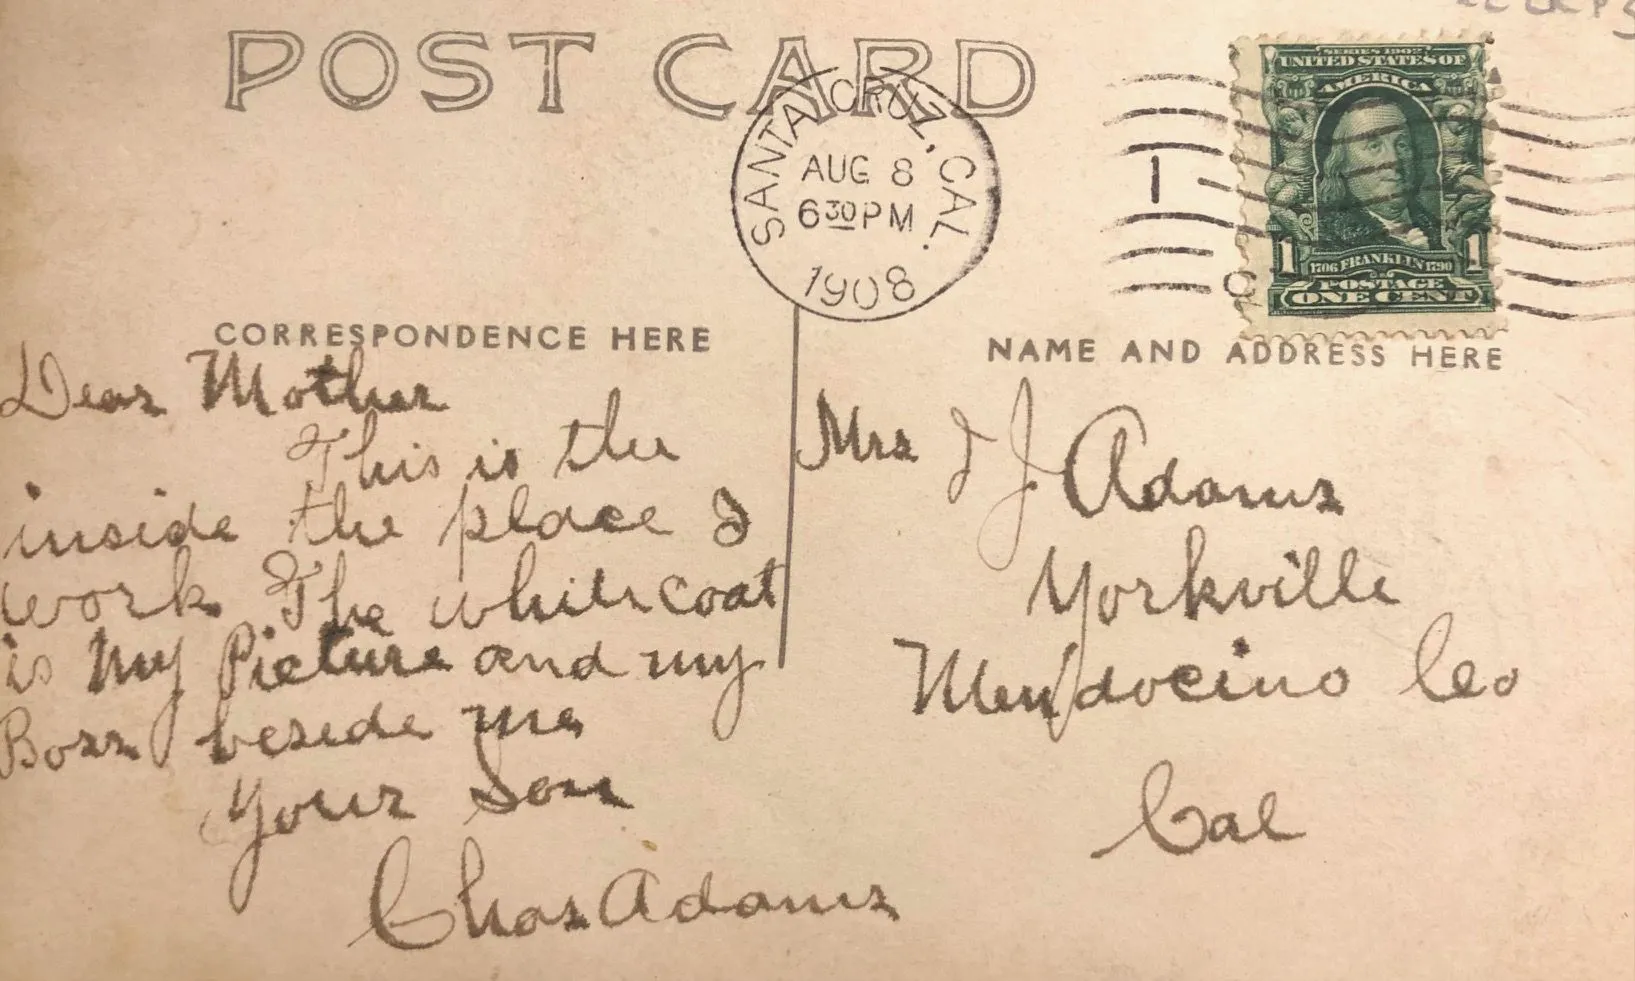 POST CARD
SANTA CRUZ, CAL.
AUG 8
6 30 PM
1908
1
SERIES 1902
UNITED STATES OF
AMERICA
1 1
1706 FRANKLIN 1790
POSTAGE
ONE CENT
CORRESPONDENCE HERE
Dear Mother
This is the
inside the place I
work The white coat
is My Picture and my
Boss beside me
Your Son
Chas Adams
NAME AND ADDRESS HERE
Mrs I J Adams
Yorkville
Mendocino Co
Cal